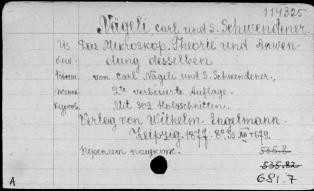 114325
Nägeli Carl und S. Schwendener.
Das Mikroskop. Theorie und Anwen-
dung desselben
von Carl Nägeli und S. Schwendener,
2te verbesserte Auflage.
Mit 302 Holzschnitten.
Verlag von Wilhelm Engelmann.
Leipzig. 1877. 8º.
535.8
535.82
681.7
A